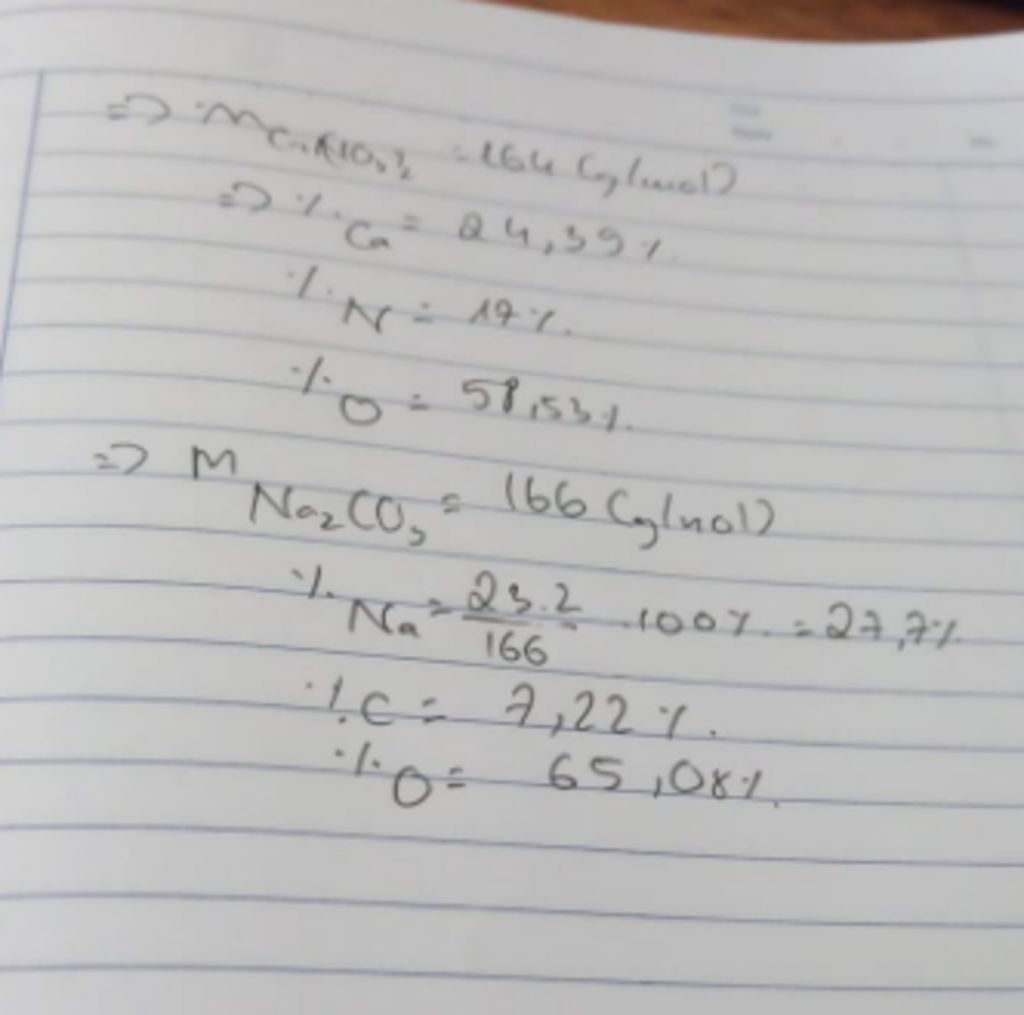 => M Ca(NO3)2 = 164 (g/mol)
=> % Ca = 24,39%
% N = 17%.
% O = 58,53%.
=> M Na2CO3 = 166 (g/mol)
% Na = 23.2/166 . 100% = 27,7%
% C = 7,22%.
% O = 65,08%.